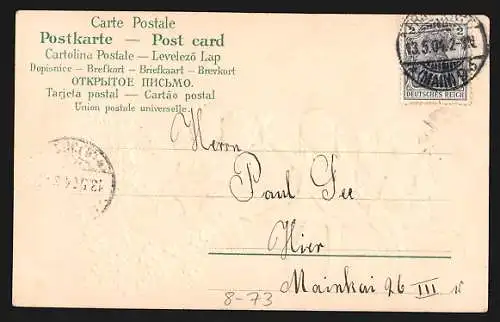 Carte Postale
Postkarte — Post card
Cartolina Postale — Levelező Lap
Dopisnice — Brefkart — Briefkaart — Brevkort
ОТКРЫТОЕ ПИСЬМО.
Tarjeta postal — Cartão postal
Union postale universelle.
2 2
13.5.04. 2-3N
(MAIN)
DEUTSCHES REICH
Herrn
Paul See
Hier
Mainkai 26 III
8-73